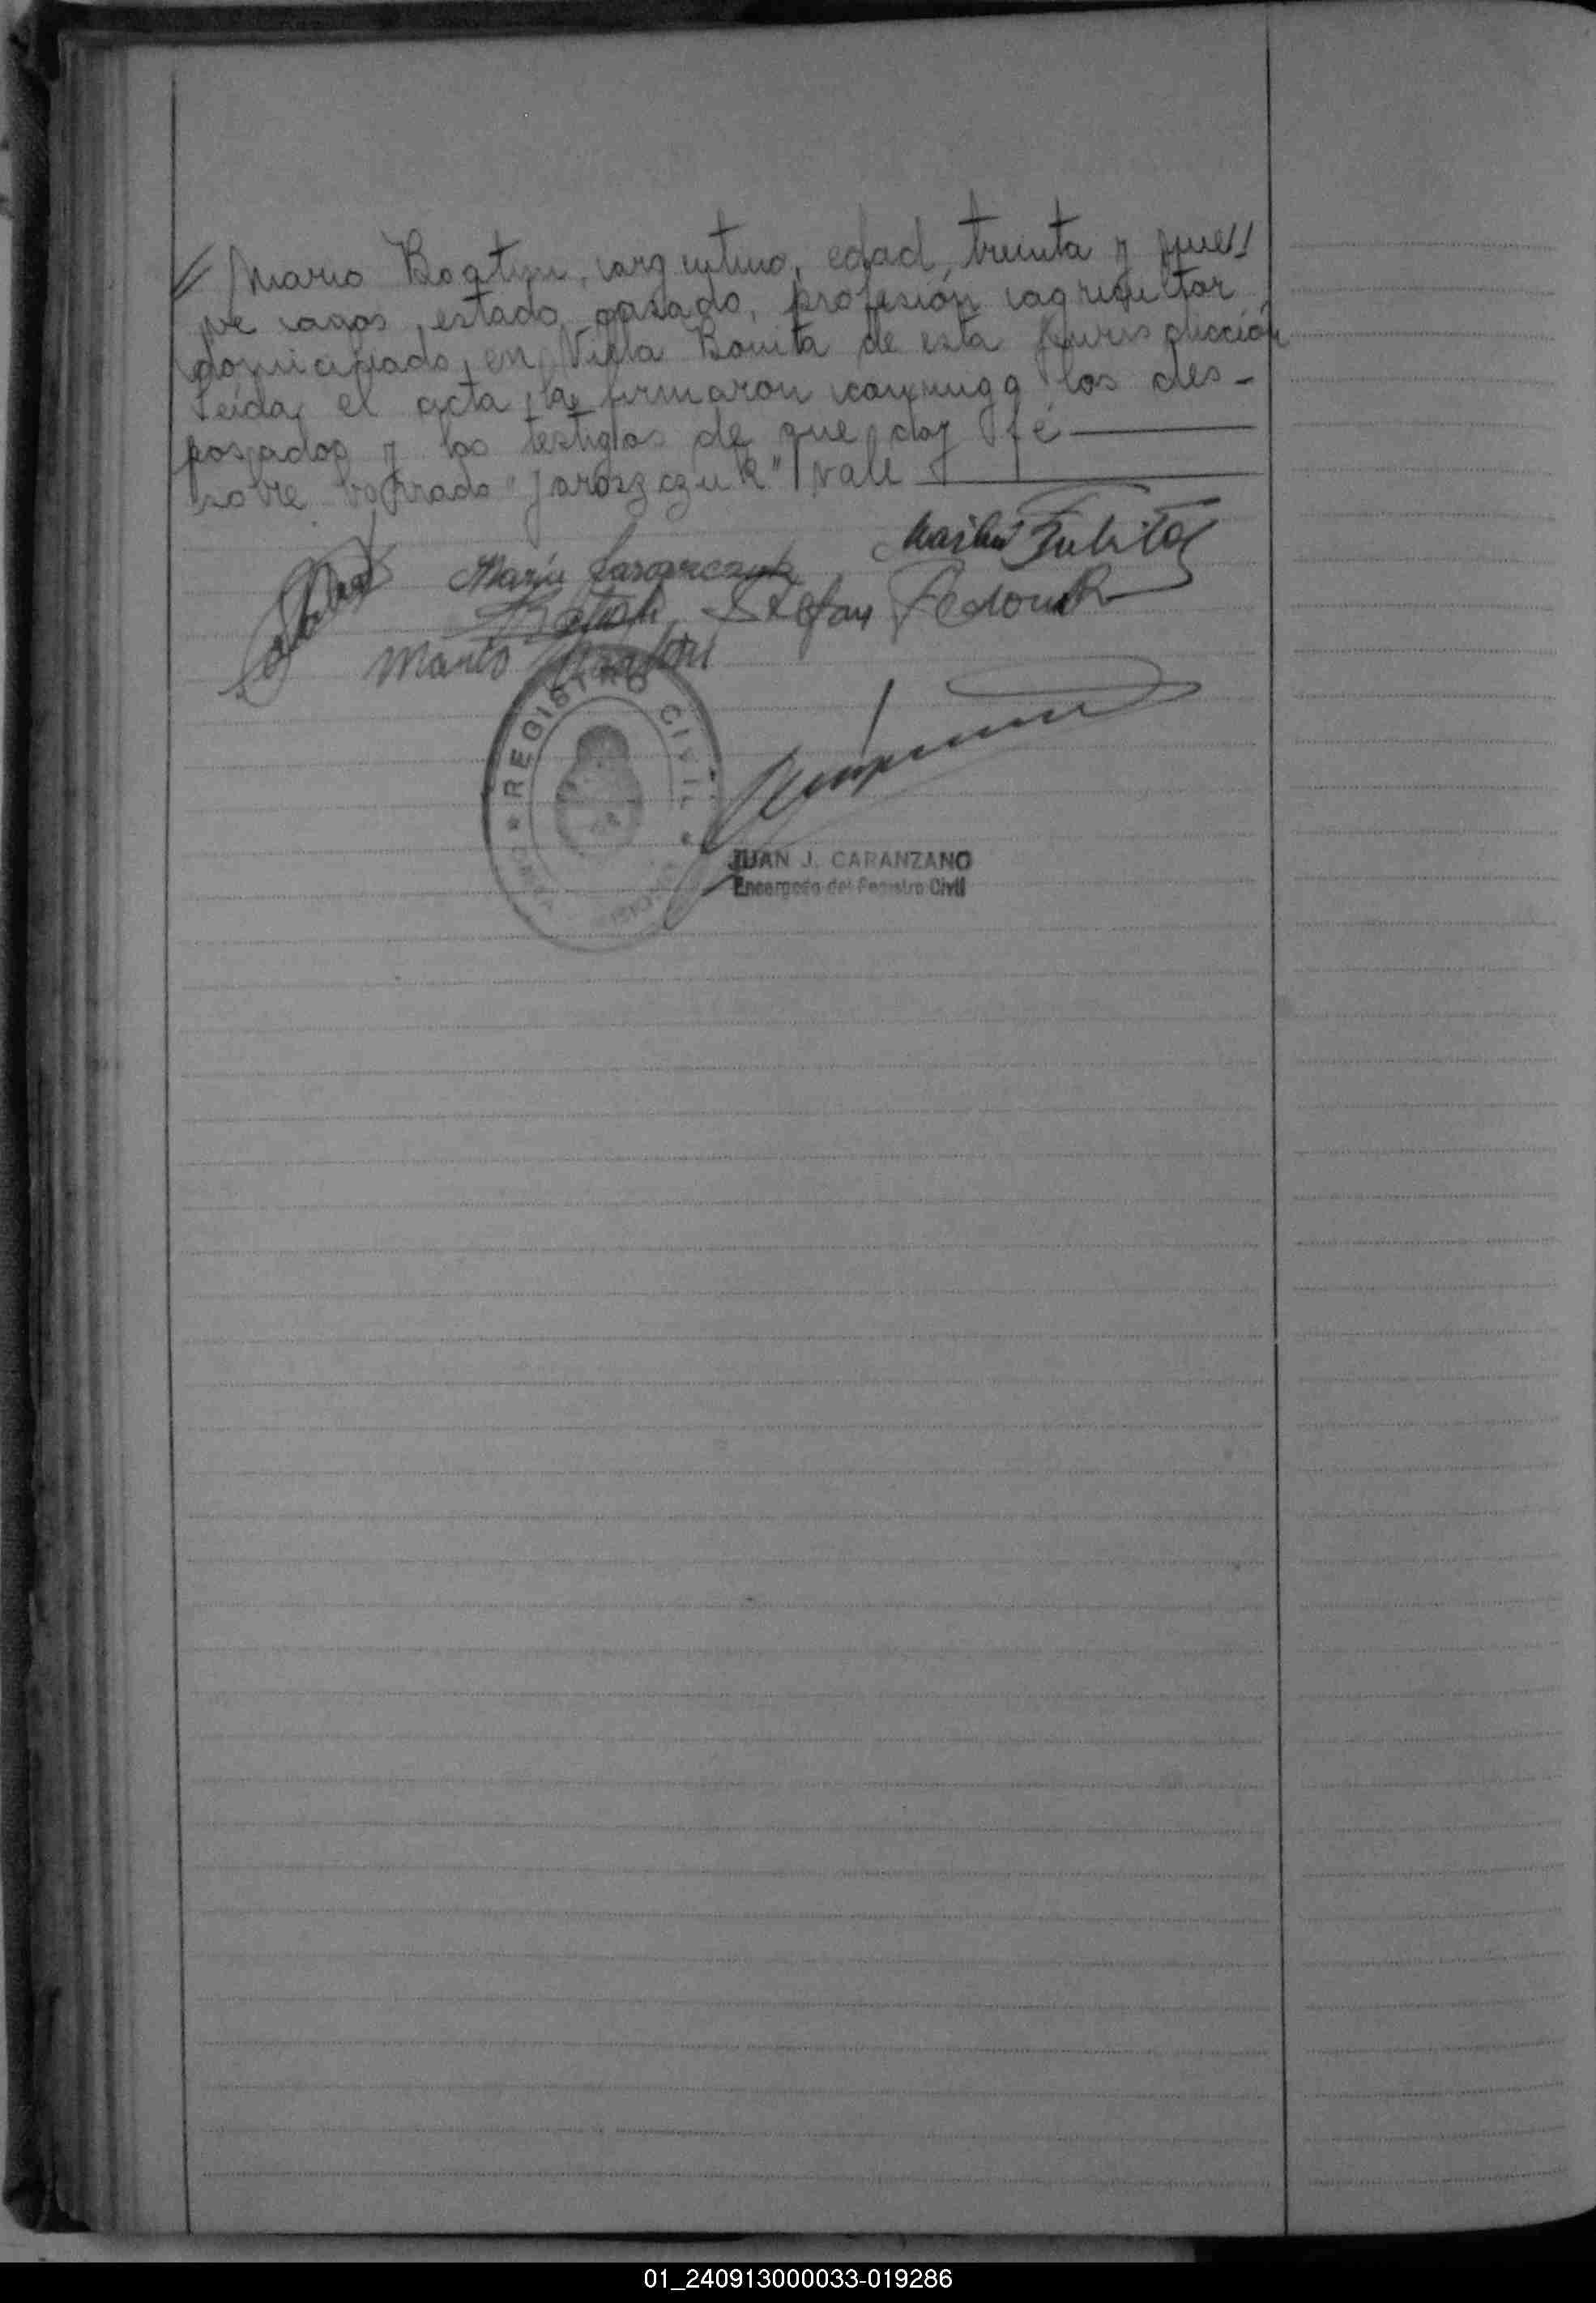 // Mario Boatini, argentino, edad, treinta y nue//
ve años, estado casado, profesión agricultor
domiciliado, en Villa Bonita de esta jurisdicción
Leida, el acta, la firmaron conmigo los des-
posados y los testigos de que doy fé
sobre borrado "Jaroszczuk" vale
Maria Jaroszczuk
Stefan Fedoruk
Mario Boatini
REGISTRO CIVIL
JUAN J. CARANZANO
Encargado del Registro Civil
01_240913000033-019286